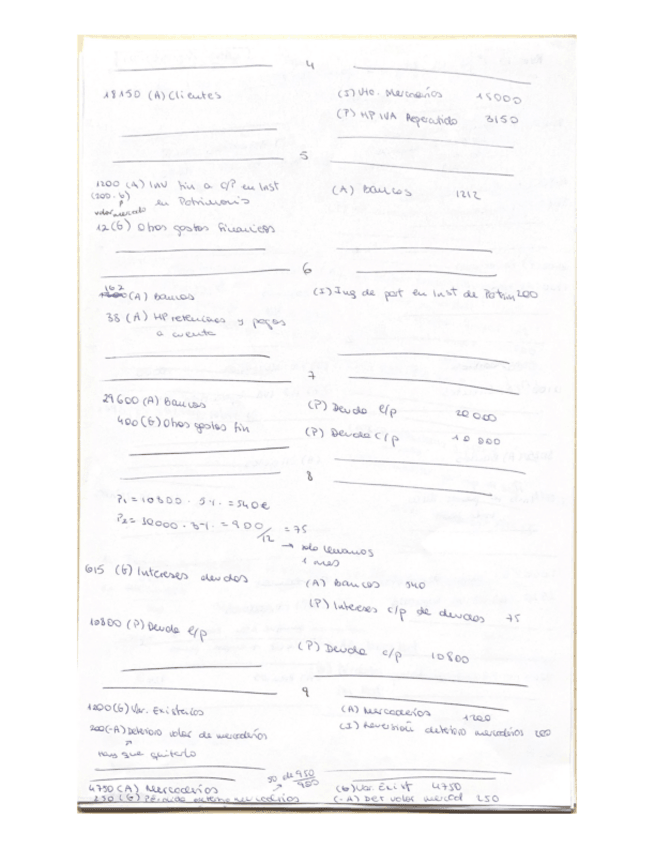 4
18150 (A) Clientes (I) Vta. Mercaderías 15000
(P) HP IVA Repercutido 3150
5
1200 (A) INV fin a c/P en Inst (A) Bancos 1212
(200·6) en Patrimonio
valor mercado
12 (G) Otros gastos financieros
6
162
(A) Bancos (I) Ing de pat en Inst de Patrim 200
38 (A) HP retenciones y pagos
a cuenta
7
29600 (A) Bancos (P) Deuda l/p 20000
400 (G) Otros gastos fin (P) Deuda c/p 10000
8
P1 = 10800 · 5% = 540€
P2 = 30000 · 3% = 900/12 = 75
→ solo llevamos
1 mes
615 (G) Intereses deudas (A) Bancos 540
(P) Intereses c/p de deudas 75
10800 (P) Deuda l/p
(P) Deuda c/p 10800
9
1200 (G) Var. Existencias (A) Mercaderías 1200
200 (-A) Deterioro valor de mercaderías (I) Reversión deterioro mercaderías 200
hay que quitarlo
50 de 950/900
4750 (A) Mercaderías (G) Var. Exist 4750
250 (G) Pérdida deterioro mercaderías (-A) Det valor mercad 250